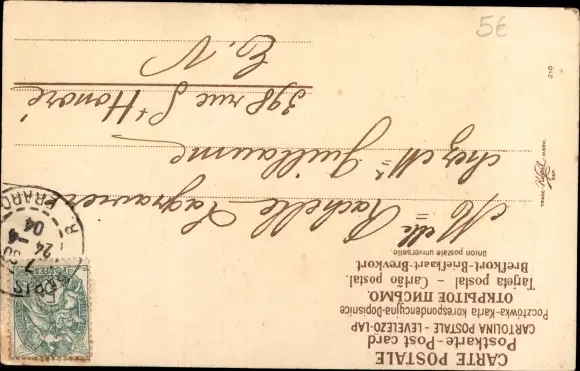 CARTE POSTALE
Postkarte-Post card
CARTOLINA POSTALE - LEVELEZÖ-LAP
Pocztówka-Karta korespondencyjna-Dopisnice
ОТКРЫТОЕ ПИСЬМО.
Tarjeta postal. - Cartão postal.
Brefkort-Briefkaart-Brevkort
Union postale universelle
PARIS
7
24 -4
04
R.
Melle Rachelle Lagravier
chez Mr Guillaume
398 rue St Honoré
E. V
TRADE MARK.
DEP.
210
5€